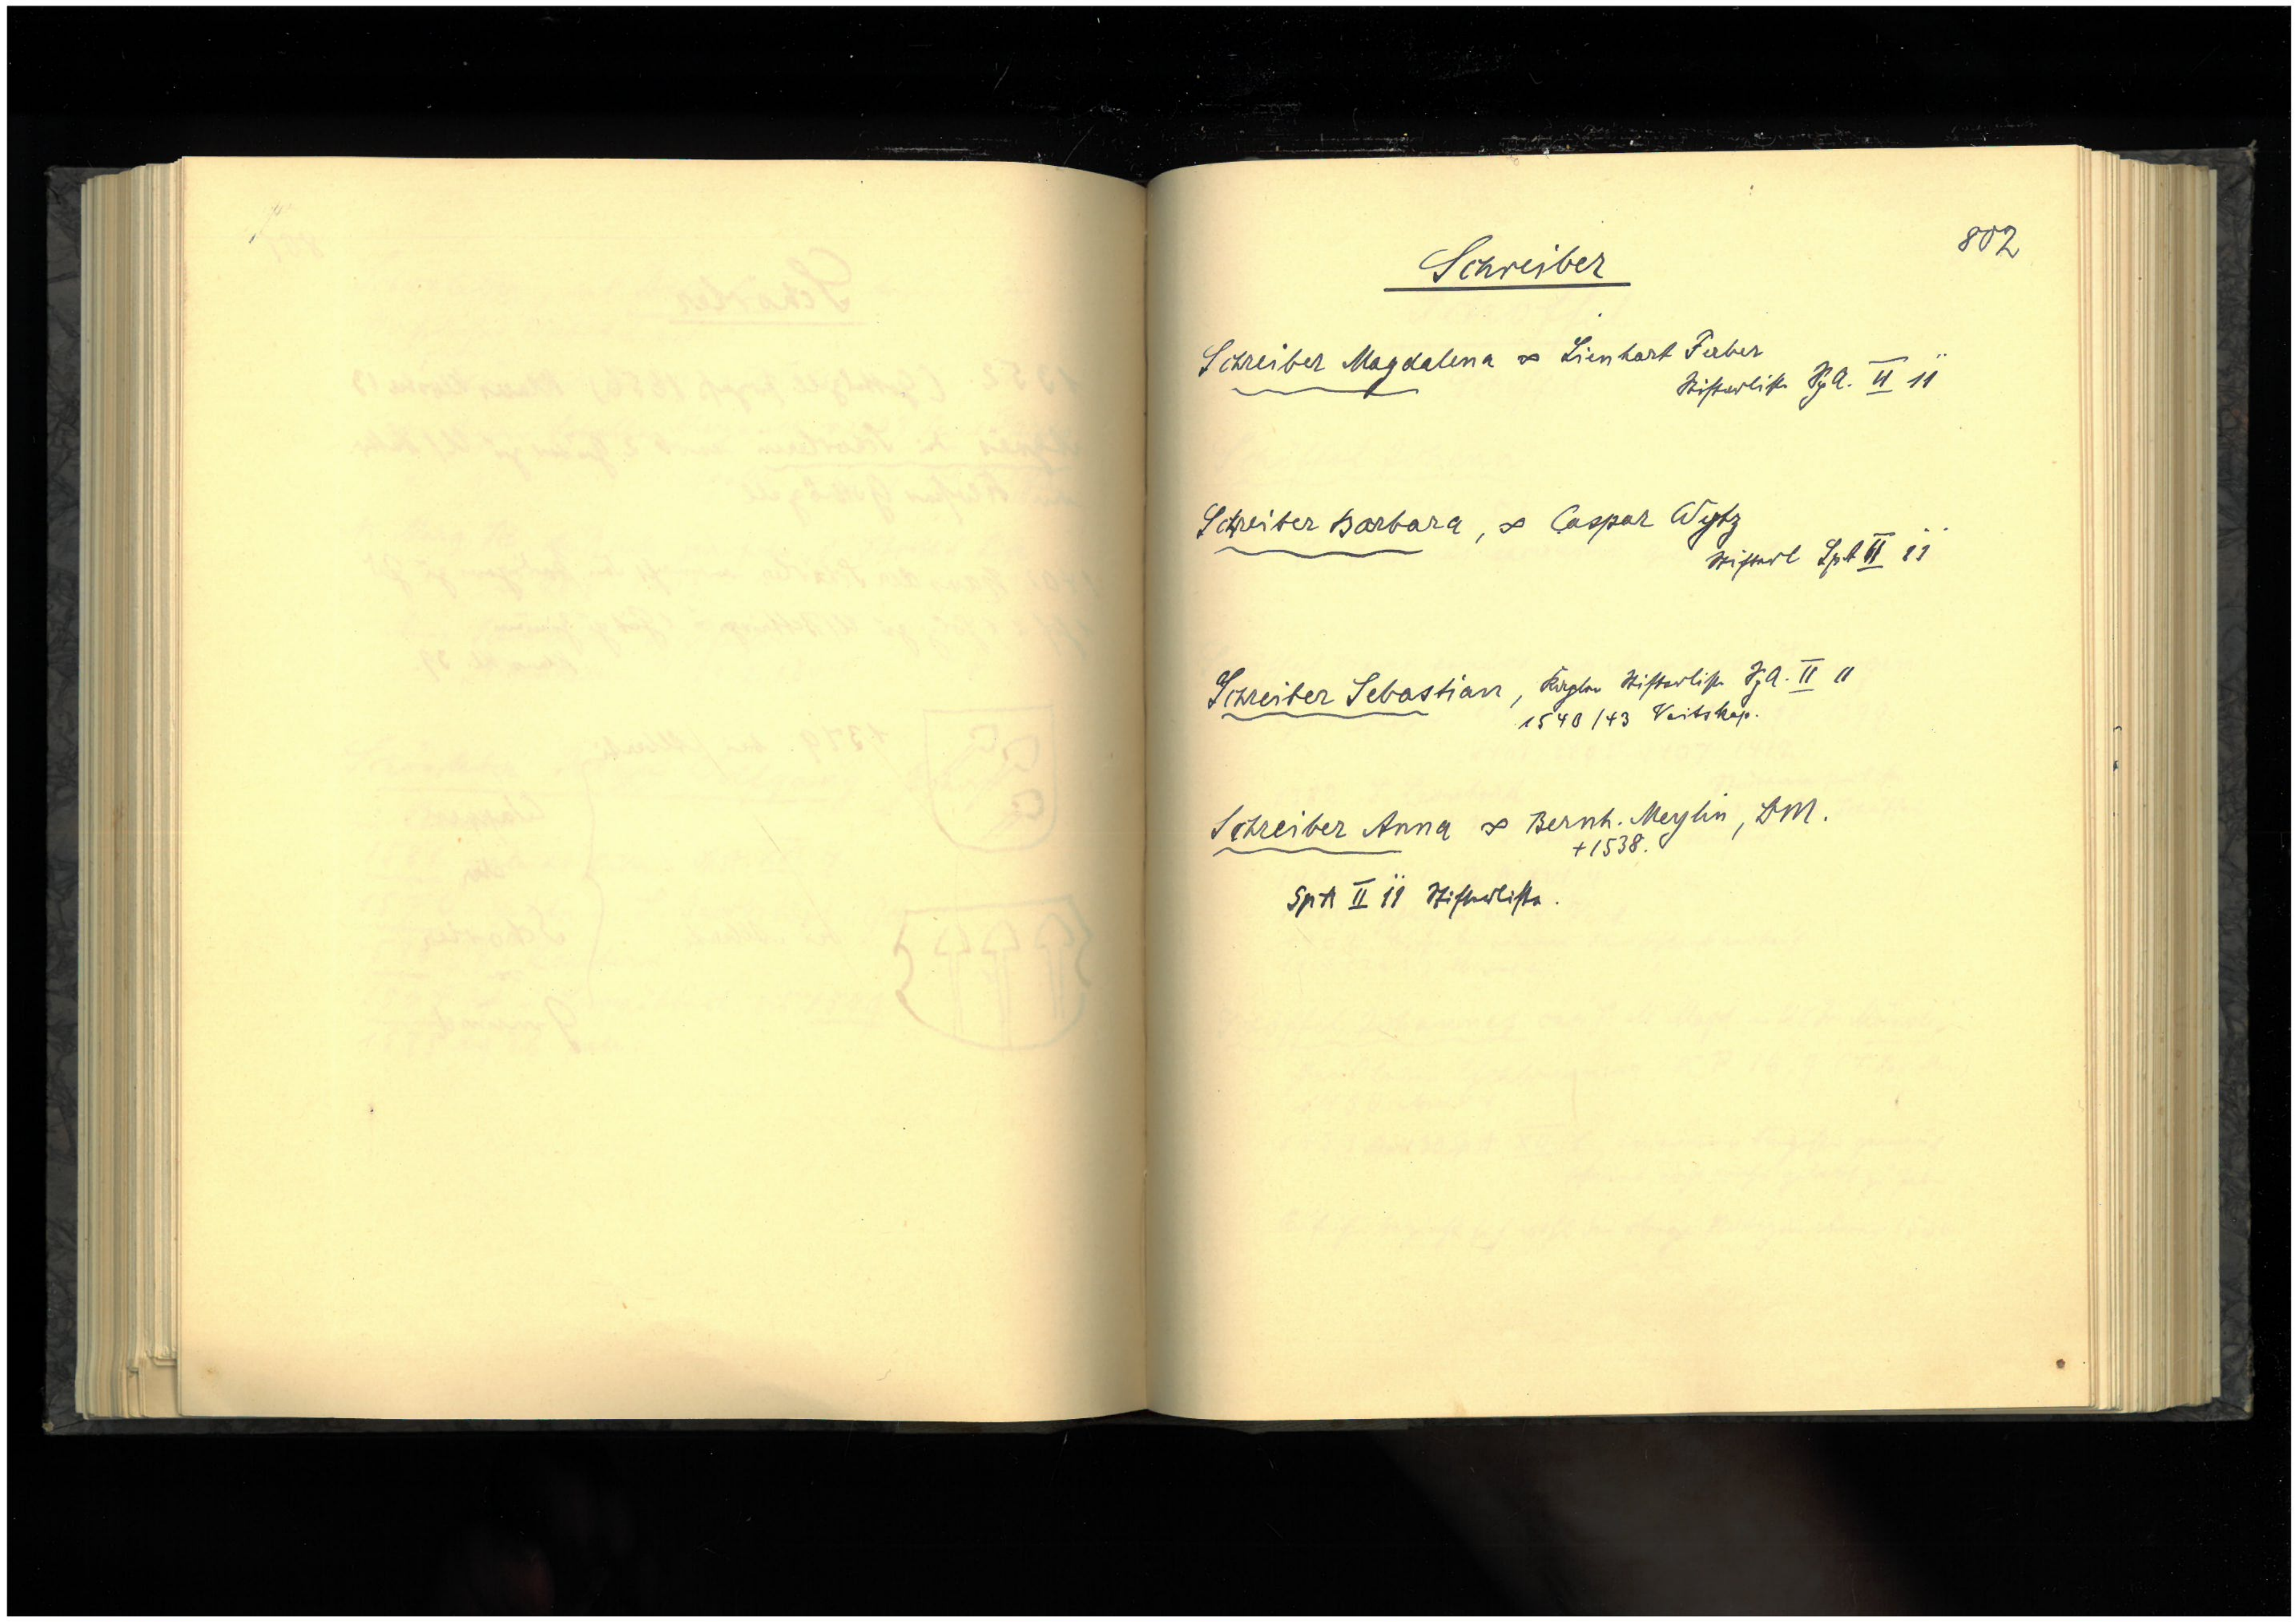 802
Schreiber
Schreiber Magdalena ∞ Lienhart Ferber
Stifterliste SpA. II 11
Schreiber Barbara, ∞ Caspar Wytz
Stifterl SpA II 11
Schreiber Sebastian, Kaplan Stifterliste SpA. II 11
1540/43 Veitskap.
Schreiber Anna ∞ Bernh. Meylin, DM.
+1538.
SpA II 11 Stifterliste.